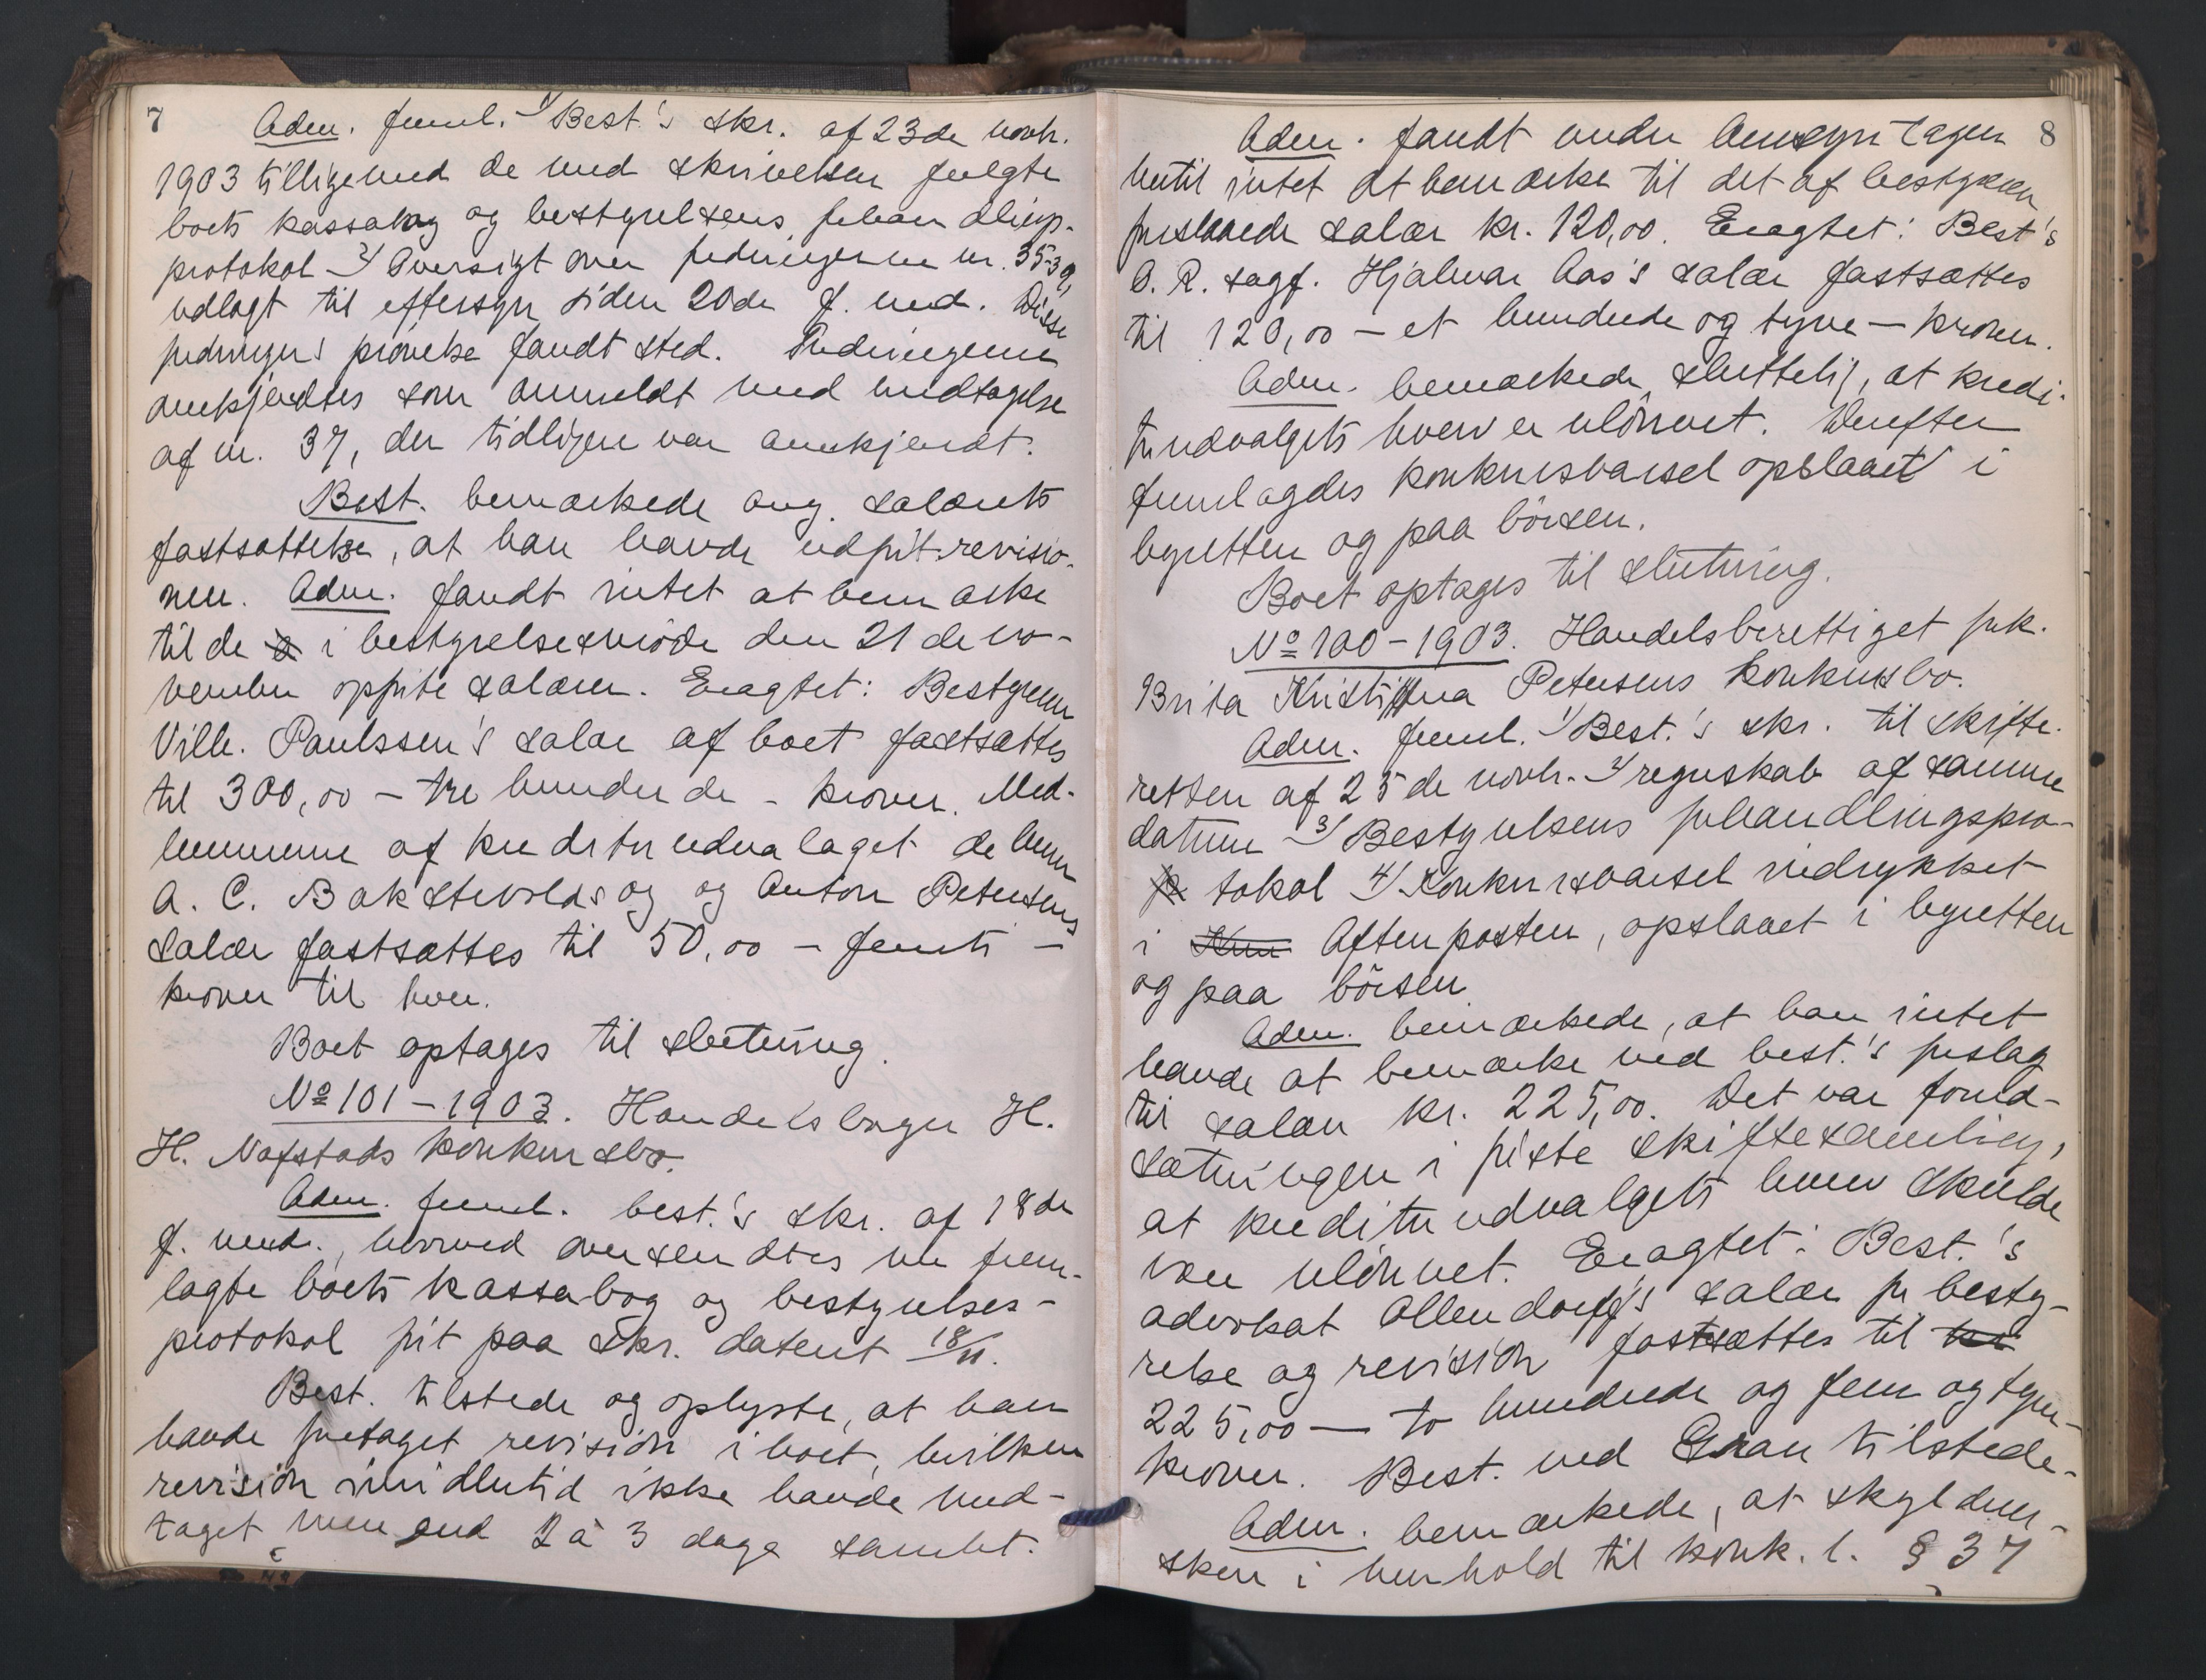 7
Adm. freml. 1/ Best.'s skr. af 23de novbr.
1903 tilligemed de med skrivelsen fulgte
boets kassabog og bestyrelsens forhandlings-
protokol 2/ Oversigt over fordringerne nr. 35-39,
udlagt til eftersyn siden 20de f. md. Disse
fordringers prøvelse fandt sted. Fordringerne
anerkjendtes som anmeldt med undtagelse
af nr. 37, der tidligere var anerkjendt.
Best. bemærkede ang. salærets
fastsættelse, at han havde udført revisio-
nen. Adm. fandt intet at bemærke
til de i bestyrelsesmøde den 21de no-
vember opførte salærer. Eragtet: Bestyreren
Vilh. Paulssen's salær af boet fastsættes
til 300,00 – tre hundrede – kroner. Med-
lemmerne af kreditorudvalaget de herrer
A. C. Bakstevolds og og Anton Petersens
salær fastsættes til 50,00 – femti –
kroner til hver.
Boet optages til slutning.
No 101 – 1903. Handelsborger H.
H. Nafstads konkursbo.
Adm. freml. best.'s skr. af 18de
f. md., hvorved oversendtes nu frem-
lagte boets kassabog og bestyrelses-
protokol ført paa skr. dateret 18/11.
Best. tilstede og oplyste, at han
havde foretaget revision i boet, hvilken
revision imidlertid ikke havde med-
taget mere end 2 à 3 dage samlet.
8
Adm. fandt under hensyn tagen
hertil intet at bemærke til det af bestyreren
foreslaaede salær kr. 120,00. Eragtet: Best's
O. R. sagf. Hjalmar Aas's salær fastsættes
til 120,00 – et hundrede og tyve – kroner.
Adm. bemærkede sluttelig, at kredi-
torudvalgets hverv er ulønnet. Derefter
fremlagdes konkursvarsel opslaaet i
byretten og paa børsen.
Boet optages til slutning.
No 100 – 1903. Handelsberettiget frk.
Brita Kristina Petersens konkursbo.
Adm. freml. 1/ Best.'s skr. til skifte-
retten af 25de novbr. 2/ regnskab af samme
datum 3/ Bestyrelsens forhandlingspro-
tokol 4/ Konkursvarsel indrykket
i Aftenposten, opslaaet i byretten
og paa børsen
Adm. bemærkede, at han intet
havde at bemærke ved best.'s forslag
til salær kr. 225,00. Det var forud-
sætningen i første skiftesamling,
at kreditorudvalgets hverv skulde
være ulønnet. Eragtet: Best.'s
advokat Ollendorff's salær for besty-
relse og revision fastsættes til
225,00 – to hundrede og fem og tyve –
kroner. Best. ved Gran tilstede.
Adm. bemærkede, at skyldner-
sken i henhold til konk. l. § 37